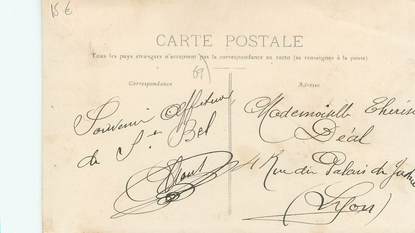 15 €
CARTE POSTALE
Tous les pays étrangers n'acceptent pas la correspondance au recto (se renseigner à la poste)
69)
Correspondance
Adresse
Souvenir Affectueux
de St Bel
Mademoiselle
Déal
4 Rue du Palais de
(Lyon)